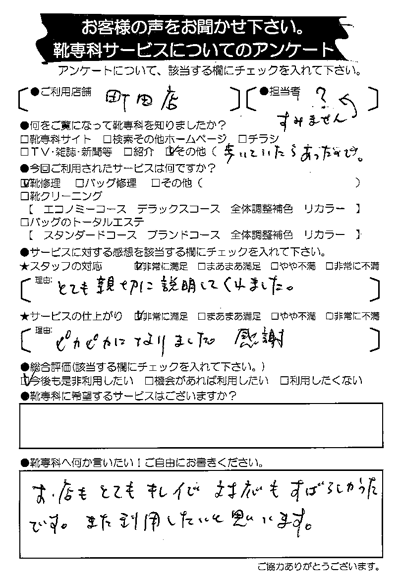 お客様の声をお聞かせ下さい。
靴専科サービスについてのアンケート
アンケートについて、該当する欄にチェックを入れて下さい。
●ご利用店舗 町田店 ●担当者 ?
すみません
●何をご覧になって靴専科を知りましたか?
□靴専科サイト □検索その他ホームページ □チラシ
□TV・雑誌・新聞等 □紹介 ☑その他( 歩いていたらあったので。
●今回ご利用されたサービスは何ですか?
☑靴修理 □バッグ修理 □その他( )
□靴クリーニング
【 エコノミーコース デラックスコース 全体調整補色 リカラー 】
□バッグのトータルエステ
【 スタンダードコース ブランドコース 全体調整補色 リカラー 】
●サービスに対する感想を該当する欄にチェックを入れて下さい。
★スタッフの対応 ☑非常に満足 □まあまあ満足 □やや不満 □非常に不満
理由: とても親切に説明してくれました。
★サービスの仕上がり ☑非常に満足 □まあまあ満足 □やや不満 □非常に不満
理由: ピカピカになりました 感謝
●総合評価(該当する欄にチェックを入れて下さい。)
☑今後も是非利用したい □機会があれば利用したい □利用したくない
●靴専科に希望するサービスはございますか?
●靴専科へ何か言いたい!ご自由にお書きください。
お店もとてもキレイで 対応もすばらしかった
です。また利用したいと思います。
ご協力ありがとうございます。